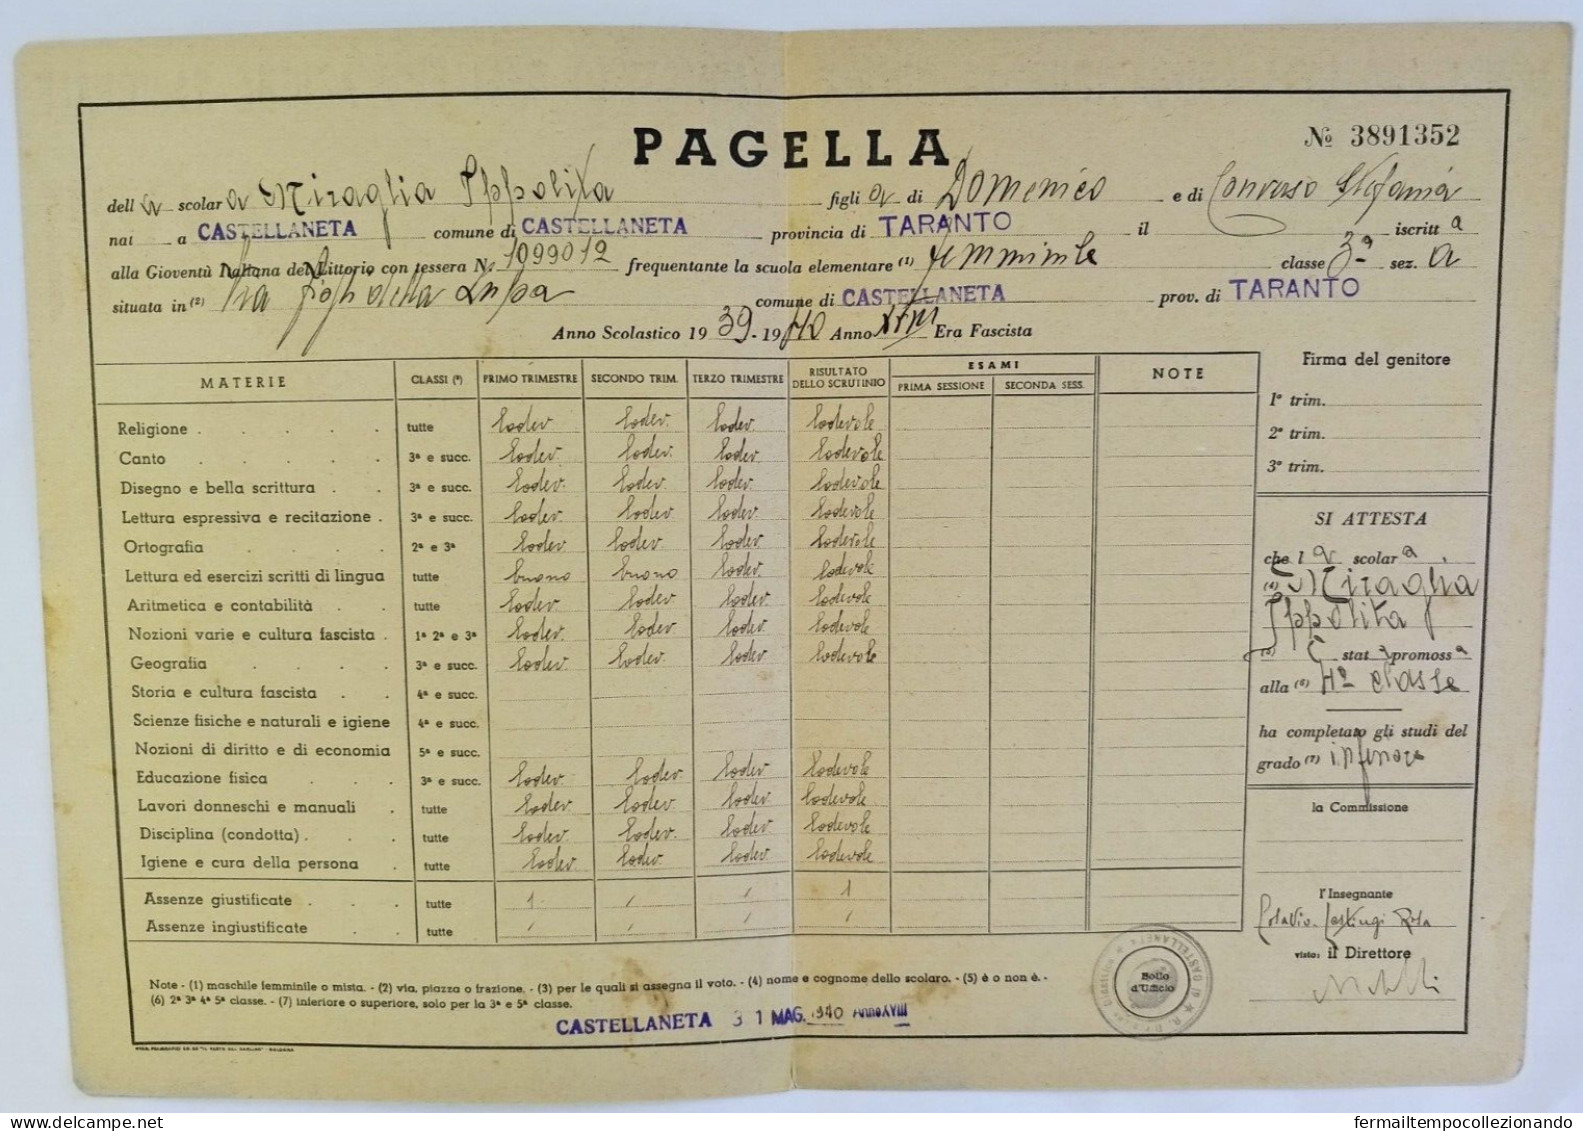 PAGELLA
№ 3891352
della scolara Miraglia Ippolita figlia di Domenico e di Converso Stefania
nat a CASTELLANETA comune di CASTELLANETA provincia di TARANTO il iscritta
alla Gioventù Italiana del Littorio con tessera N. 1099012 frequentante la scuola elementare (1) femminile classe 3ª sez. a
situata in (2) Via figli della Lupa comune di CASTELLANETA prov. di TARANTO
Anno Scolastico 1939-1940 Anno XVIII Era Fascista
MATERIE CLASSI (3) PRIMO TRIMESTRE SECONDO TRIM. TERZO TRIMESTRE RISULTATO DELLO SCRUTINIO ESAMI PRIMA SESSIONE SECONDA SESS. NOTE
Religione tutte lodev. lodev. lodev. lodevole
Canto 3ª e succ. lodev. lodev. lodev. lodevole
Disegno e bella scrittura 3ª e succ. lodev. lodev. lodev. lodevole
Lettura espressiva e recitazione 3ª e succ. lodev. lodev. lodev. lodevole
Ortografia 2ª e 3ª lodev. lodev. lodev. lodevole
Lettura ed esercizi scritti di lingua tutte buono buono lodev. lodevole
Aritmetica e contabilità tutte lodev. lodev. lodev. lodevole
Nozioni varie e cultura fascista 1ª 2ª e 3ª lodev. lodev. lodev. lodevole
Geografia 3ª e succ. lodev. lodev. lodev. lodevole
Storia e cultura fascista 4ª e succ.
Scienze fisiche e naturali e igiene 4ª e succ.
Nozioni di diritto e di economia 5ª e succ.
Educazione fisica 3ª e succ. lodev. lodev. lodev. lodevole
Lavori donneschi e manuali tutte lodev. lodev. lodev. lodevole
Disciplina (condotta) tutte lodev. lodev. lodev. lodevole
Igiene e cura della persona tutte lodev. lodev. lodev. lodevole
Assenze giustificate tutte 1 / / 1
Assenze ingiustificate tutte / / / /
Firma del genitore
1º trim.
2º trim.
3º trim.
SI ATTESTA
che la scolara
(4) Miraglia
Ippolita
(5) È stata promossa
alla (6) 4ª classe
ha completato gli studi del
grado (7) inferiore
la Commissione
l'Insegnante
Rosa
visto: il Direttore
Note - (1) maschile femminile o mista. - (2) via, piazza o frazione. - (3) per le quali si assegna il voto. - (4) nome e cognome dello scolaro. - (5) è o non è. -
(6) 2ª 3ª 4ª 5ª classe. - (7) inferiore o superiore, solo per la 3ª e 5ª classe.
CASTELLANETA 31 MAG. 1940 Anno XVIII
Bollo
d'Ufficio
CASTELLANETA
fermailtempocollezionando
delcampe.net